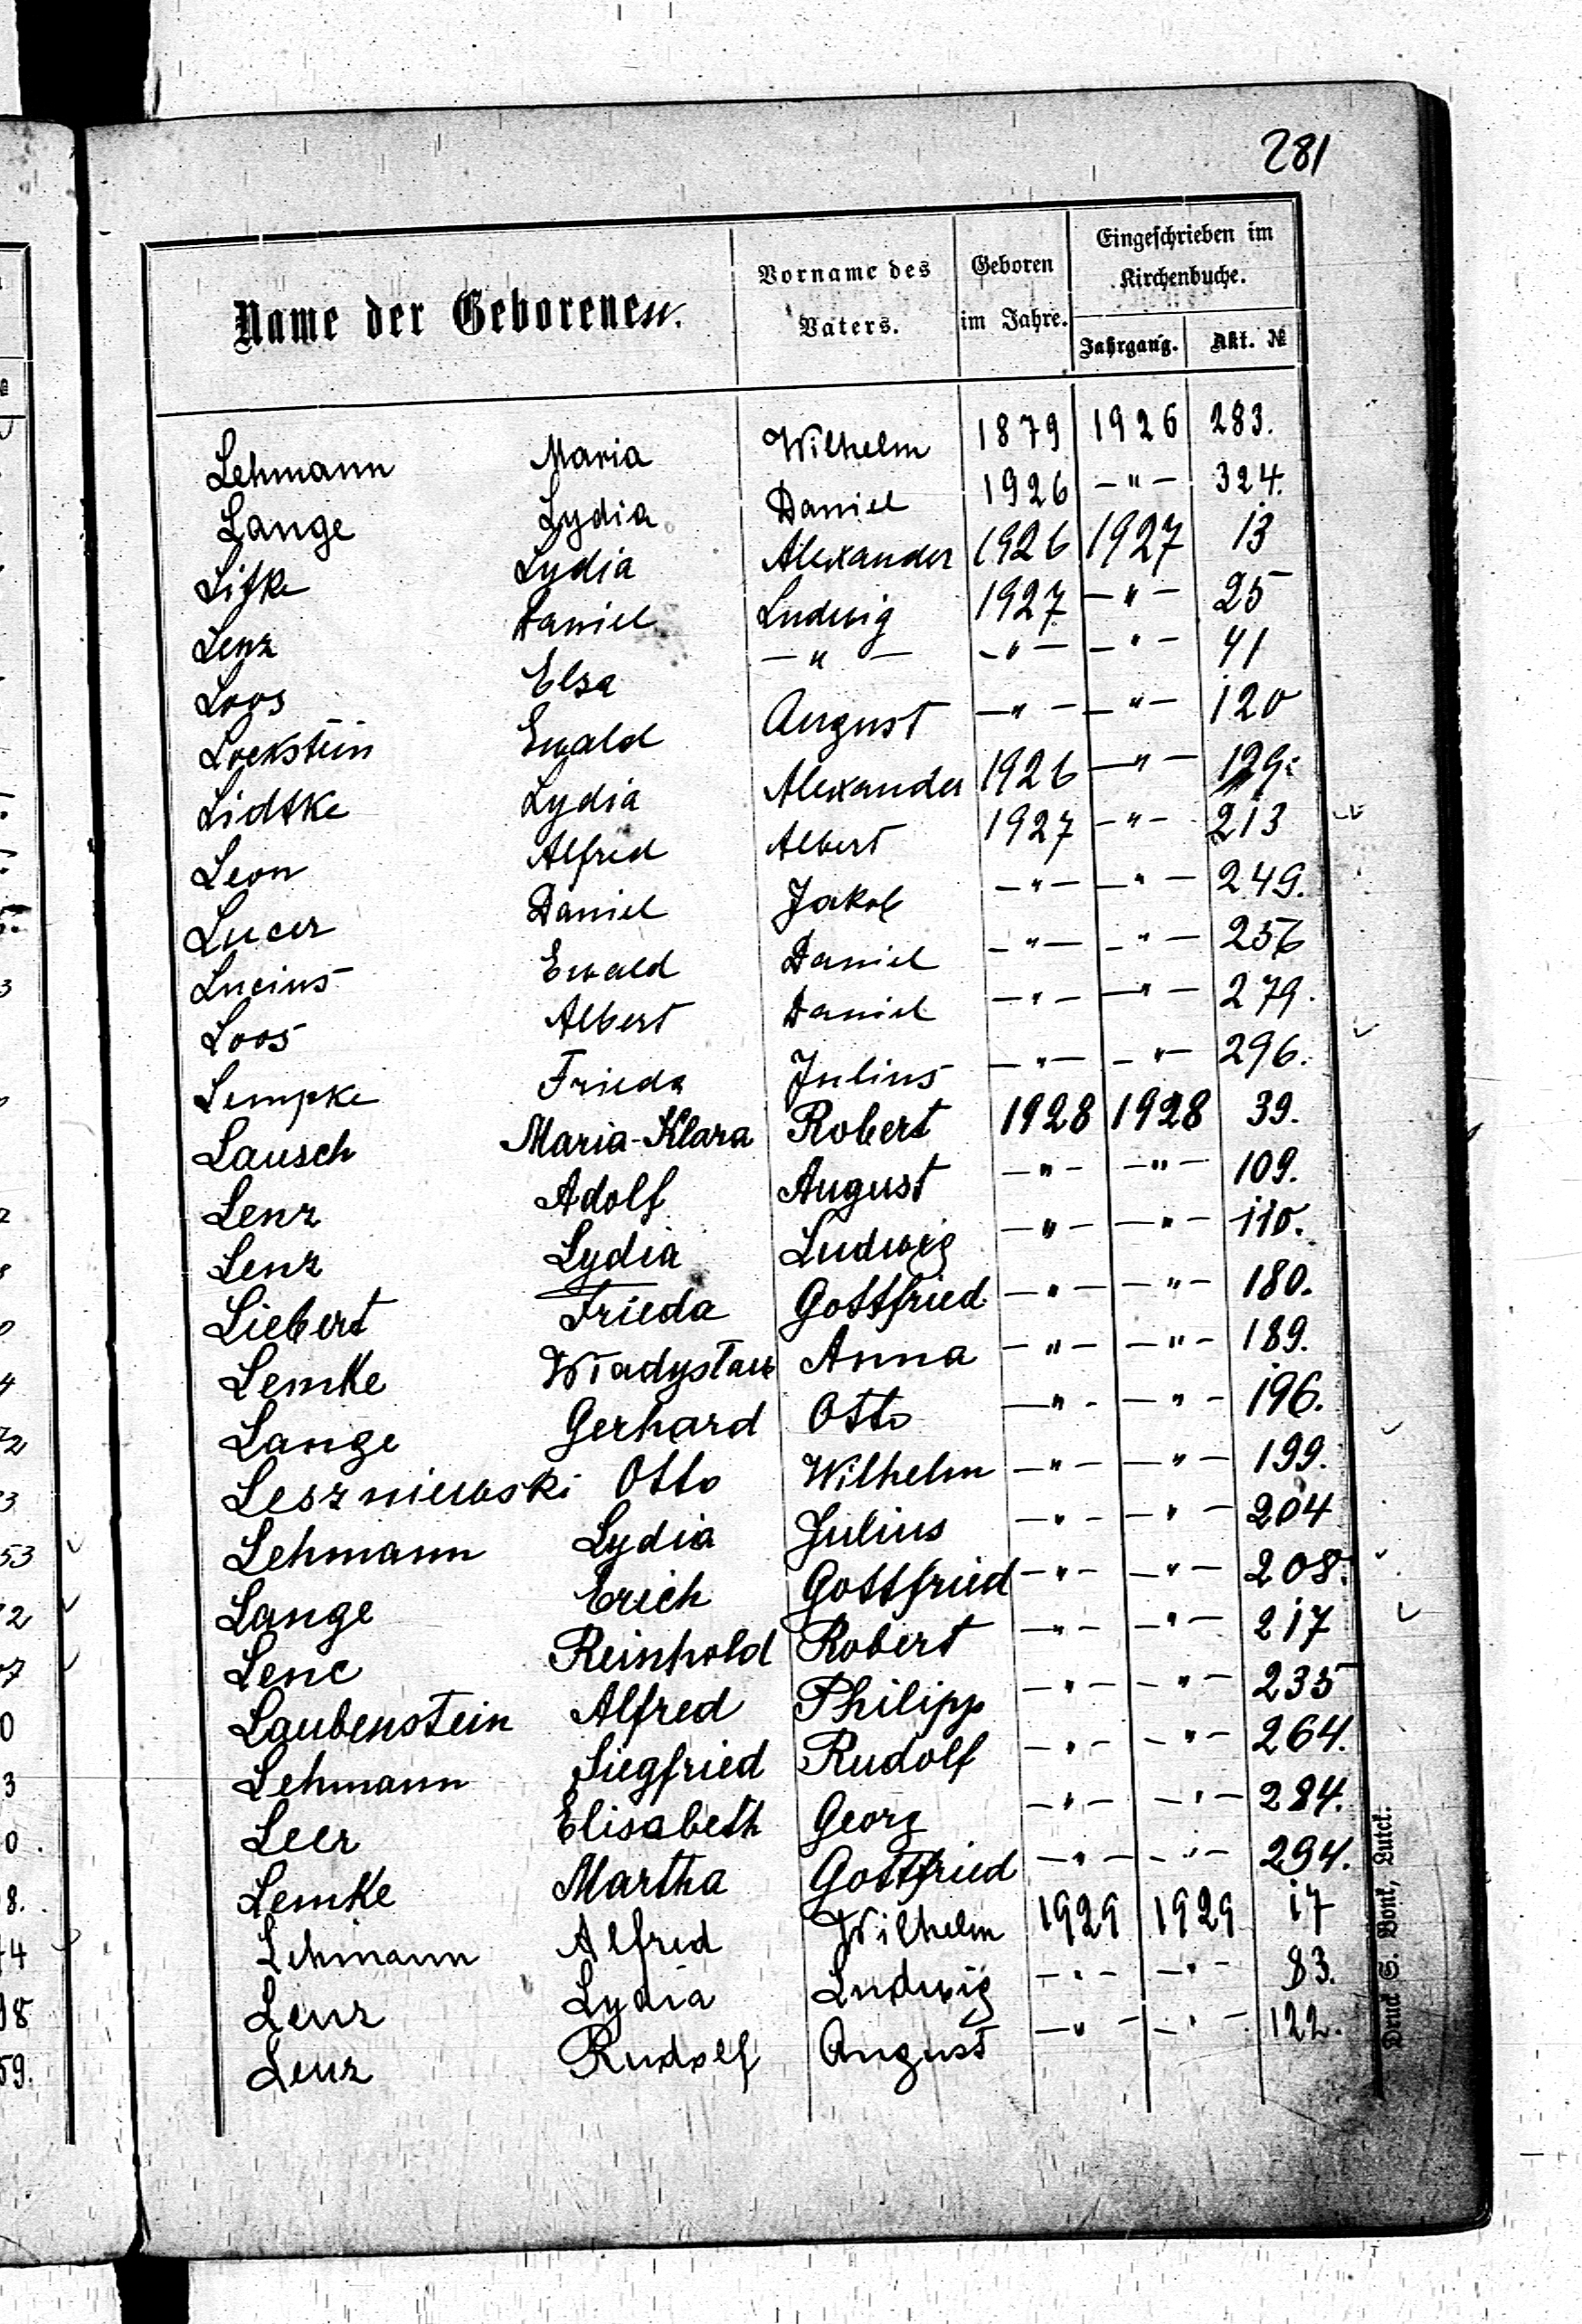 281
Name der Geborenen.
Vorname des Vaters.
Geboren im Jahre.
Eingeschrieben im Kirchenbuche.
Jahrgang. Akt. №
Lehmann Maria Wilhelm 1879 1926 283.
Lange Lydia Daniel 1926 -"- 324.
Litke Lydia Alexander 1926 1927 13
Lenz Daniel Ludwig 1927 -"- 25
Loos Elsa -"- -"- -"- 41
Lockstein Ewald August -"- -"- 120
Lidtke Lydia Alexander 1926 -"- 129.
Leon Alfred Albert 1927 -"- 213
Lucer Daniel Jakob -"- -"- 249.
Lucius Ewald Daniel -"- -"- 256
Loos Albert Daniel -"- -"- 279.
Lempke Frieda Julius -"- -"- 296.
Lausch Maria-Klara Robert 1928 1928 39.
Lenz Adolf August -"- -"- 109.
Lenz Lydia Ludwig -"- -"- 110.
Liebert Frieda Gottfried -"- -"- 180.
Lemke Władysław Anna -"- -"- 189.
Lange Gerhard Otto -"- -"- 196.
Leszniewski Otto Wilhelm -"- -"- 199.
Lehmann Lydia Julius -"- -"- 204
Lange Erich Gottfried -"- -"- 208.
Lenc Reinhold Robert -"- -"- 217
Laubenstein Alfred Philipp -"- -"- 235
Lehmann Siegfried Rudolf -"- -"- 264.
Leer Elisabeth Georg -"- -"- 284.
Lemke Martha Gottfried -"- -"- 294.
Lehmann Alfred Wilhelm 1929 1929 17
Lenz Lydia Ludwig -"- -"- 83.
Lenz Rudolf August -"- -"- 122.
Druck S. Bonk, Lutck.